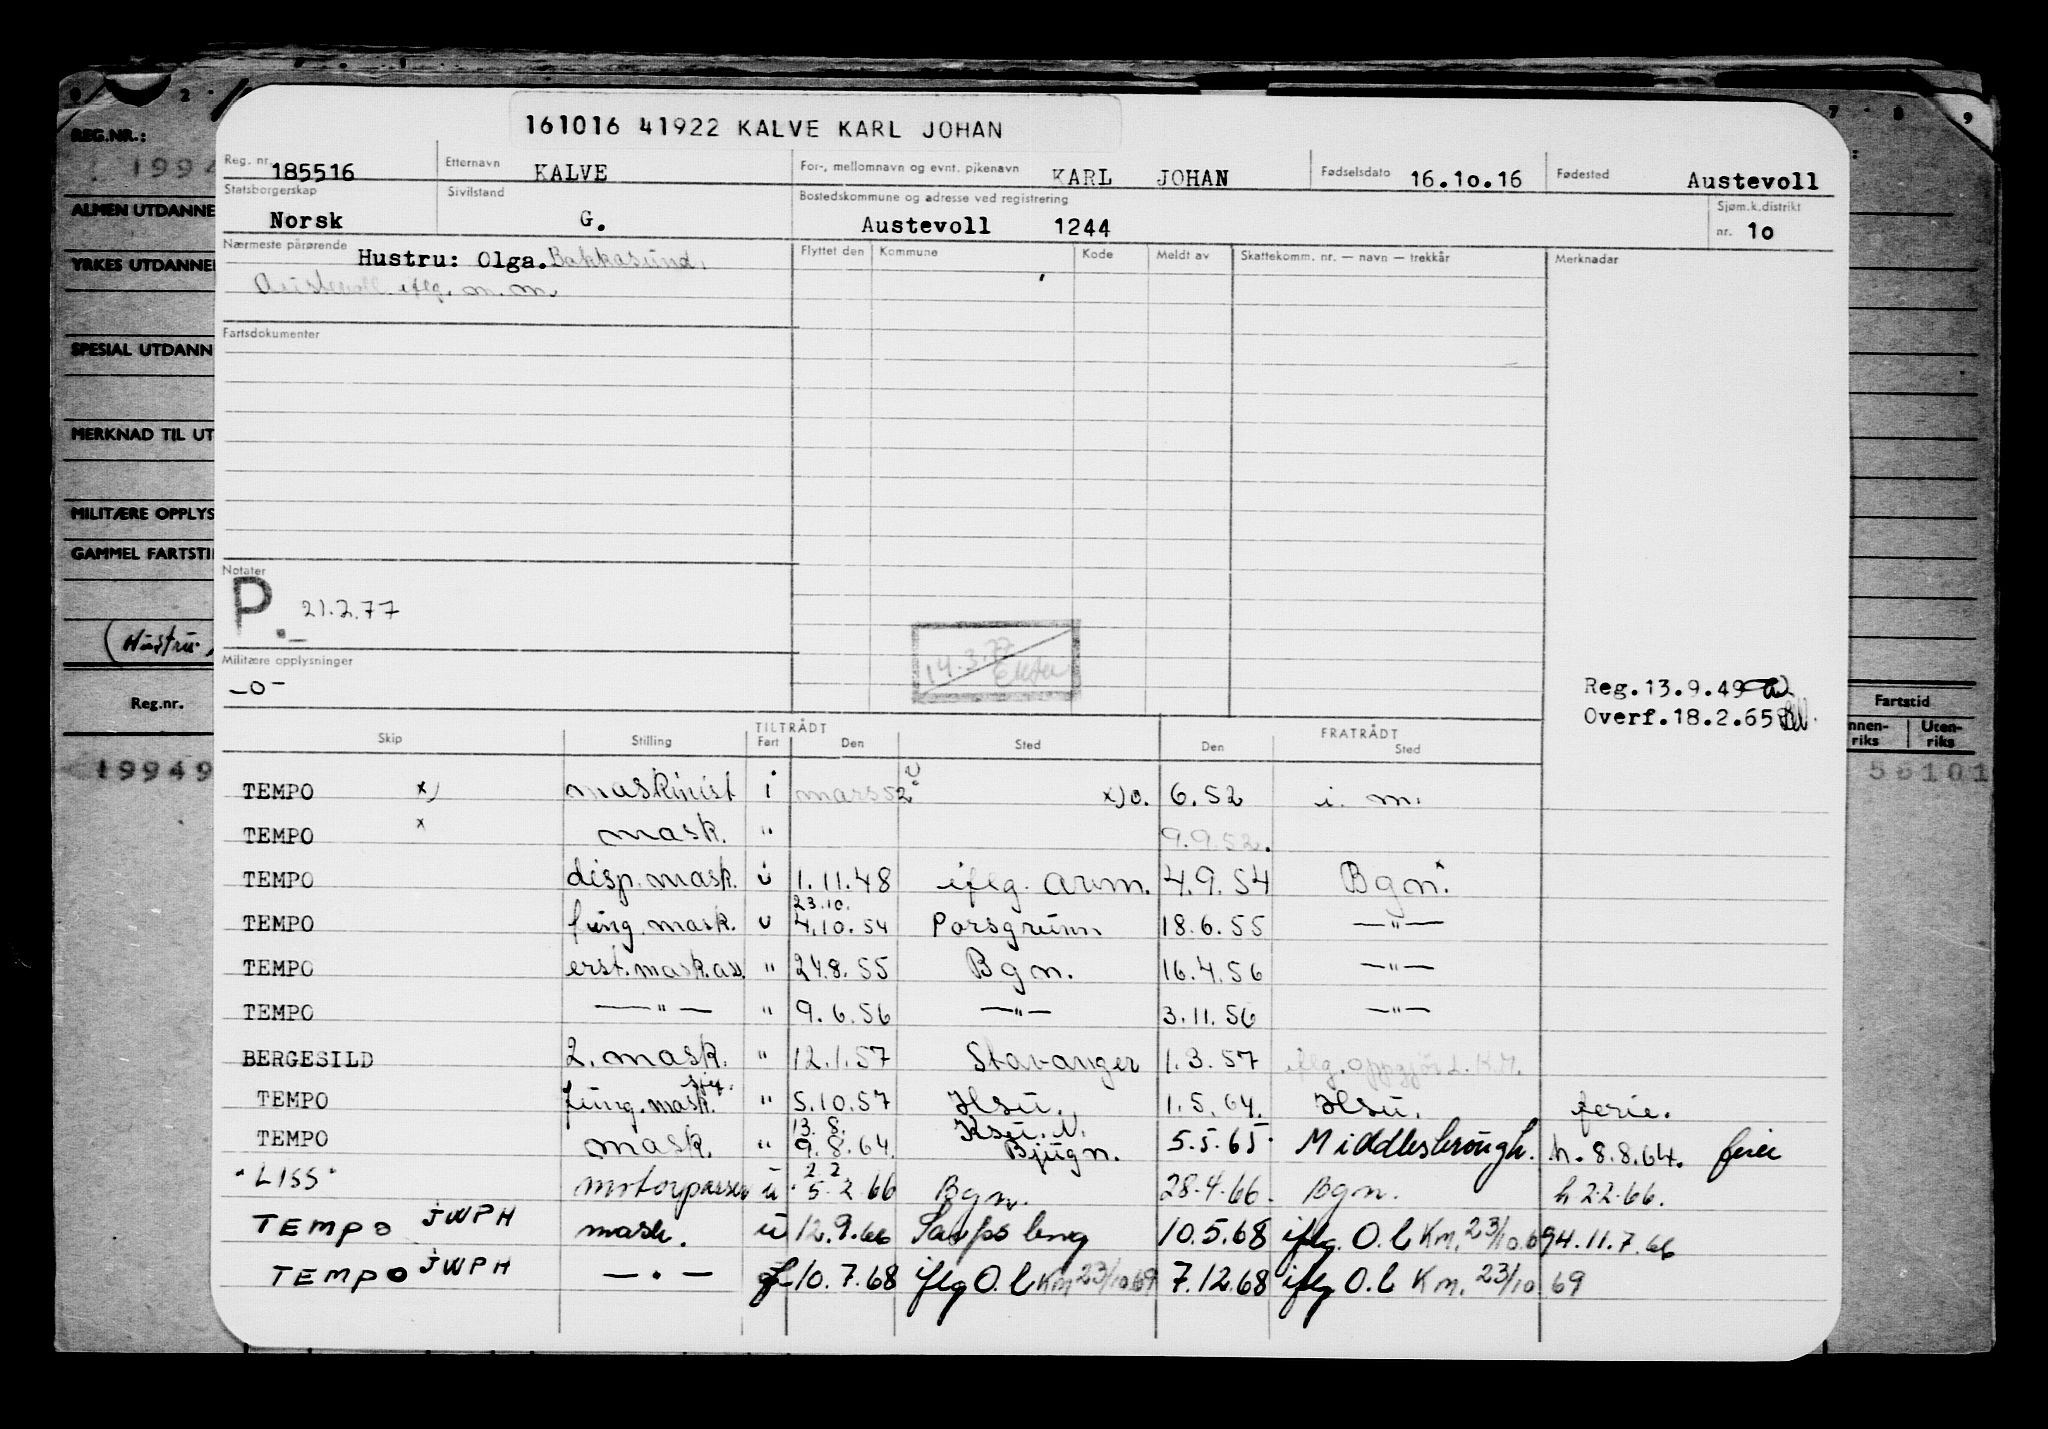 161016 41922 KALVE KARL JOHAN
Reg. nr. 185516 Etternavn KALVE For-, mellomnavn og evnt. pikenavn KARL JOHAN Fødselsdato 16.10.16 Fødested Austevoll
Statsborgerskap Norsk Sivilstand G. Bostedskommune og adresse ved registrering Austevoll 1244 Sjøm.k.distrikt nr. 10
Nærmeste pårørende Hustru: Olga. Bakkasund, Flyttet den Kommune Kode Meldt av Skattekomm. nr. — navn — trekkår Merknadar
Austevoll iflg. m.m.
Fartsdokumenter
Notater
P. 21.2.77
14.3.77
Militære opplysninger
-0-
Reg.13.9.49
Overf.18.2.65
TILTRÅDT FRATRÅDT
Skip Stilling Fart Den Sted Den Sted
TEMPO x) maskinist i mars 52 x) 0. 6.52 i. m.
TEMPO x mask. " 9.9.52.
TEMPO disp. mask. u 1.11.48 iflg. arvm. 4.9.54 Bgn. x
23.10.
TEMPO fung. mask. u 4.10.54 Porsgrunn 18.6.55 —"—
TEMPO erst. mask. ass. " 24.8.55 Bgn. 16.4.56 —"—
TEMPO —"— " 9.6.56 —"— 3.11.56 —"—
BERGESILD 2. mask. " 12.1.57 Stavanger 1.3.57 iflg. oppgjör
TEMPO fung. mask. sjef. " 5.10.57 Hsu. 1.5.64. Hsu. ferie.
13.8. Ksu. N.
TEMPO mask. " 9.8.64. Bjugn. 5.5.65. Middlesbrough. h. 8.8.64. ferie
2 2
"LISS" motorpasser u 5.2 66 Bgn. 28.4.66. Bgn. h 2.2.66.
TEMPO JWPH mask. u 12.9.66 Sarpsborg 10.5.68 iflg. O.b Km. 23/10.69 4.11.7.66
TEMPO JWPH —"— 10.7.68 iflg O.b Km 23/10.69 7.12.68 iflg O.b Km. 23/10.69
REG.NR.:
ALMEN UTDANNE
YRKES UTDANNE
SPESIAL UTDANN
MERKNAD TIL UT
MILITÆRE OPPLYS
GAMMEL FARTSTI
(Hustru
Reg.nr.
19949
Fartstid
nnen-riks Uten-riks
56101